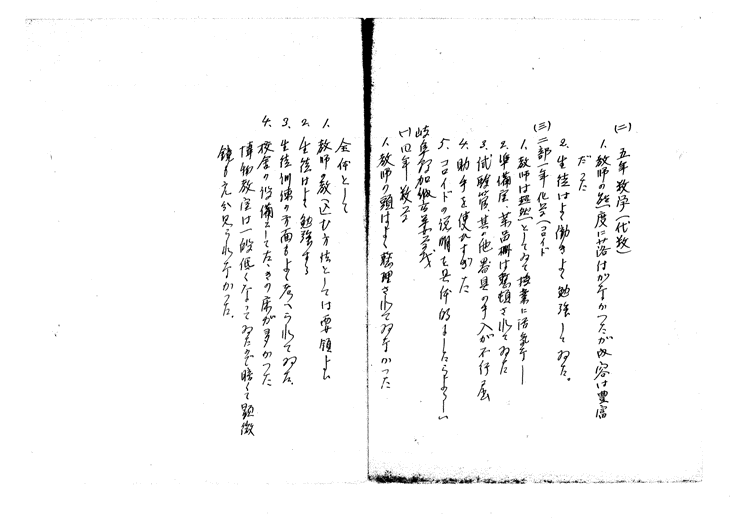 (二) 五年数学(代数)
1. 教師の態度に落付がなかつたが内容は豊富
だつた
2. 生徒はよく働きよく勉強してゐた。
(三) 二部一年化学(コロイド
1. 教師は超然としてゐて授業に活気なし
2. 準備室、薬品棚は整頓されてゐた
3. 試験管其の他器具の手入が不行届
4. 助手を使わなかつた
5. コロイドの説明を具体的にしたらよろしい
岐阜縣加納高等女学校
(一) 四年 数学
1. 教師の頭はよく整理されてゐなかつた
全体として
1. 教師の教へ込む方法としては要領よし
2. 生徒はよく勉強する
3. 生徒訓練の方面もよく考へられてゐた、
4. 校舎の設備として左きの床が多かつた
博物教室は一段低くなつてゐたが暗くて顕微
鏡も充分見られなかつた。